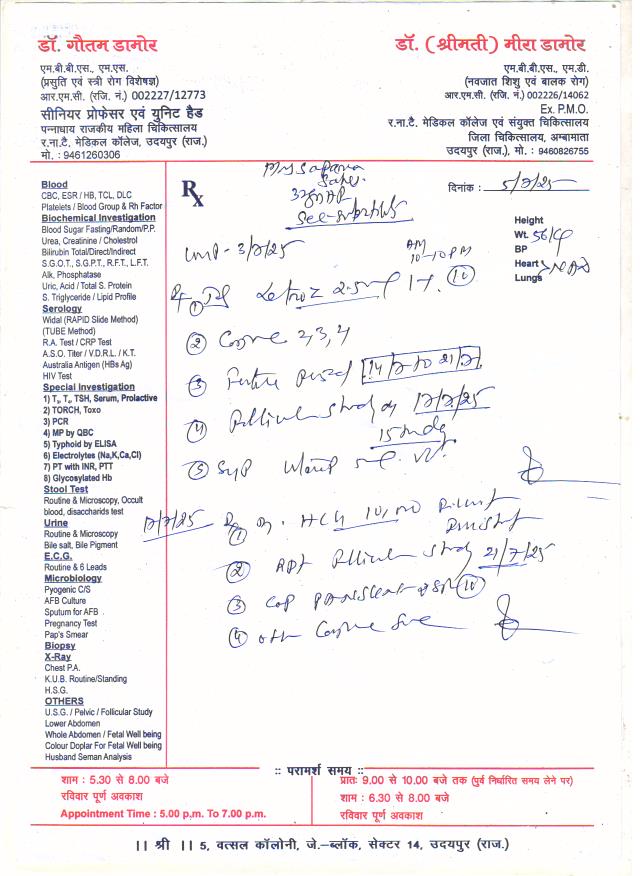 डॉ. गौतम डामोर
एम.बी.बी.एस., एम.एस.
(प्रसुति एवं स्त्री रोग विशेषज्ञ)
आर.एम.सी. (रजि. नं.) 002227/12773
सीनियर प्रोफेसर एवं युनिट हैड
पन्नाधाय राजकीय महिला चिकित्सालय
र.ना.टै. मेडिकल कॉलेज, उदयपुर (राज.)
मो. : 9461260306
डॉ. (श्रीमती) मीरा डामोर
एम.बी.बी.एस., एम.डी.
(नवजात शिशु एवं बालक रोग)
आर.एम.सी. (रजि. नं.) 002226/14062
Ex. P.M.O.
र.ना.टै. मेडिकल कॉलेज एवं संयुक्त चिकित्सालय
जिला चिकित्सालय, अम्बामाता
उदयपुर (राज.), मो. : 9460826755
Blood
CBC, ESR / HB, TCL, DLC
Platelets / Blood Group & Rh Factor
Biochemical Investigation
Blood Sugar Fasting/Random/P.P.
Urea, Creatinine / Cholestrol
Bilirubin Total/Direct/Indirect
S.G.O.T., S.G.P.T., R.F.T., L.F.T.
Alk, Phosphatase
Uric, Acid / Total S. Protein
S. Triglyceride / Lipid Profile
Serology
Widal (RAPID Slide Method)
(TUBE Method)
R.A. Test / CRP Test
A.S.O. Titer / V.D.R.L. / K.T.
Australia Antigen (HBs Ag)
HIV Test
Special Investigation
1) T₃, T₄, TSH, Serum, Prolactive
2) TORCH, Toxo
3) PCR
4) MP by QBC
5) Typhoid by ELISA
6) Electrolytes (Na,K,Ca,Cl)
7) PT with INR, PTT
8) Glycosylated Hb
Stool Test
Routine & Microscopy, Occult
blood, disaccharids test
Urine
Routine & Microscopy
Bile salt, Bile Pigment
E.C.G.
Routine & 6 Leads
Microbiology
Pyogenic C/S
AFB Culture
Sputum for AFB
Pregnancy Test
Pap's Smear
Biopsy
X-Ray
Chest P.A.
K.U.B. Routine/Standing
H.S.G.
OTHERS
U.S.G. / Pelvic / Follicular Study
Lower Abdomen
Whole Abdomen / Fetal Well being
Colour Doplar For Fetal Well being
Husband Seman Analysis
Rx
दिनांक : 5/7/25
Height
Wt. 56
BP
Heart NAD
Lungs
LMP - 3/7/25
① Letroz 2.5mg
② 2,3,4
③ Fertile Period 14/7 to 21/7
④ Follicular study on 12/7/25
⑤ Syp
① HCG 10,000
② Follicular study 21/7/25
③ Cap 10
④
:: परामर्श समय ::
शाम : 5.30 से 8.00 बजे
रविवार पूर्ण अवकाश
Appointment Time : 5.00 p.m. To 7.00 p.m.
प्रातः 9.00 से 10.00 बजे तक (पुर्व निर्धारित समय लेने पर)
शाम : 6.30 से 8.00 बजे
रविवार पूर्ण अवकाश
|| श्री || 5, वत्सल कॉलोनी, जे.–ब्लॉक, सेक्टर 14, उदयपुर (राज.)